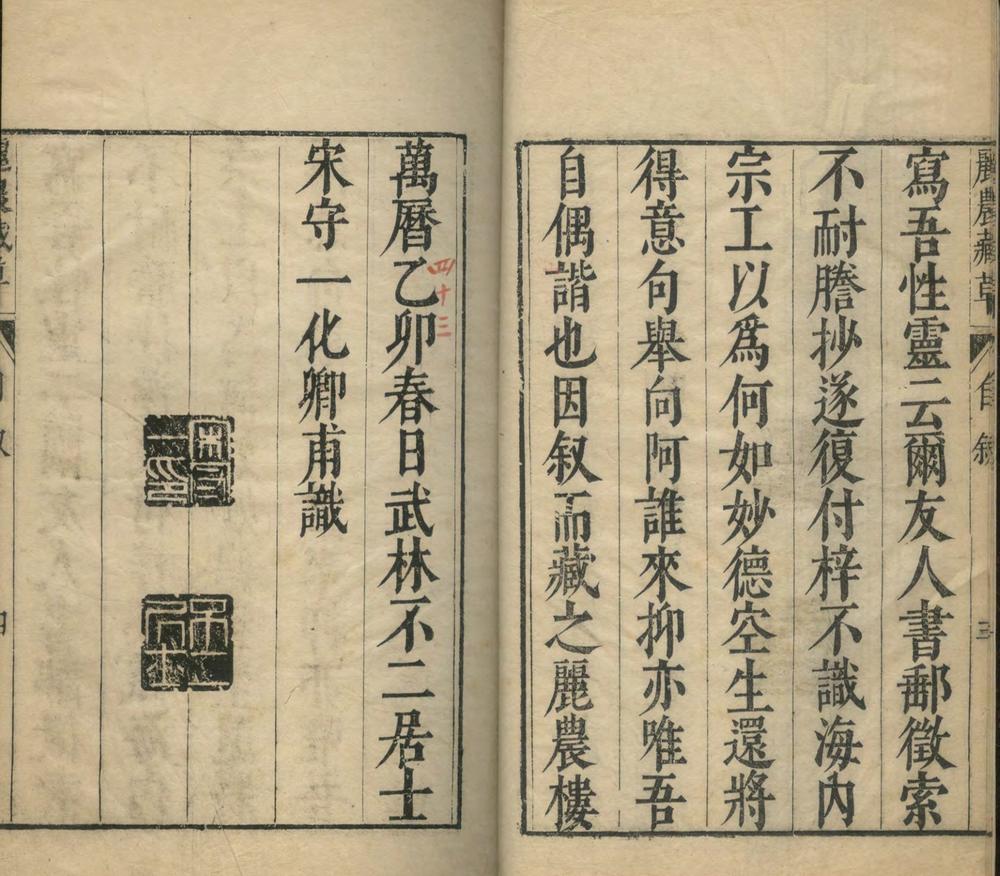 麗農藏草
自叙
三
寫吾性靈云爾友人書郵徵索
不耐謄抄遂復付梓不識海內
宗工以爲何如妙德空生還將
得意句舉向阿誰來抑亦唯吾
自偶諧也因叙而藏之麗農樓
萬曆乙卯春日武林不二居士
四十三
宋守一化卿甫識
宋守一印
四